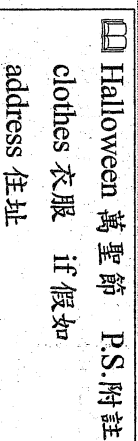 Halloween 萬聖節 P.S.附註
clothes 衣服 if 假如
address 住址